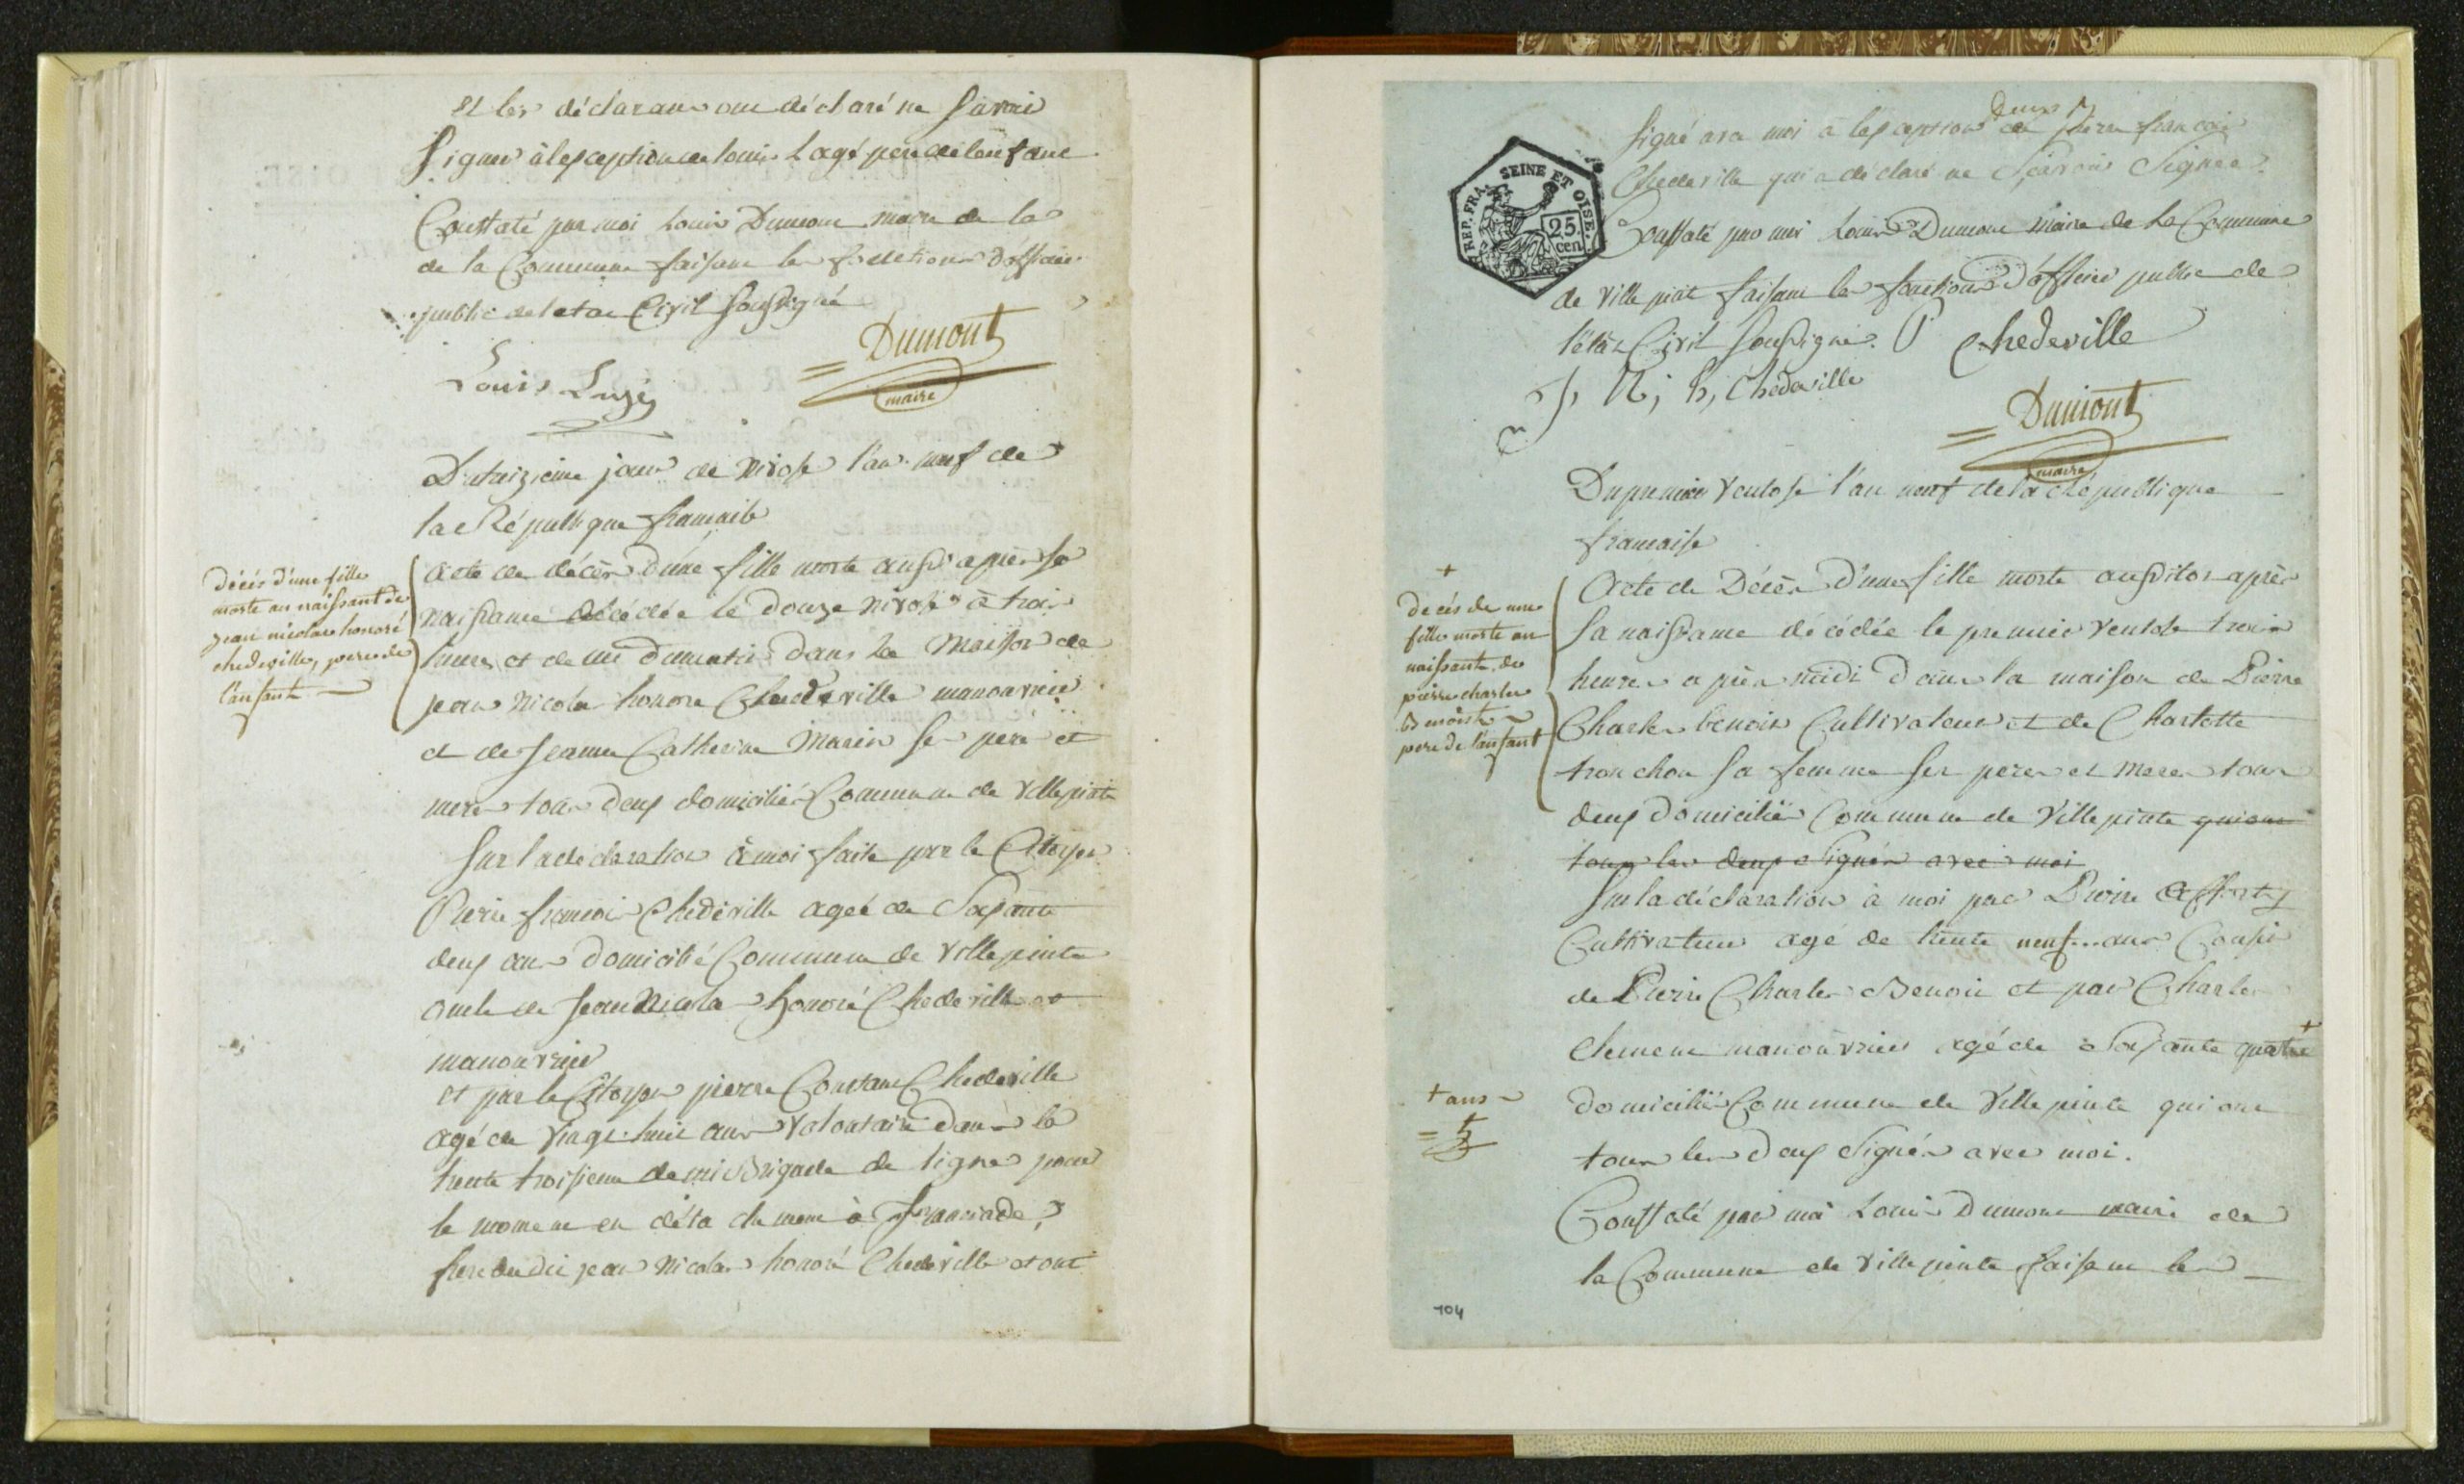 et les déclarans ont déclaré ne savoir
signer à lexception de louis Lagé pere de lenfant
Constaté par moi Louis Dumont maire de la
de la Commune faisant les fonctions d'officier
public de letat Civil soussigné
Dumont
maire
Louis Lagé
Du treizieme jour de nivose l'an neuf de
la République francaise
décés d'une fille
morte au naissant de
jean nicolas honoré
chedeville, pere de
l'anfant
acte de décès d'une fille morte aussi apres sa
naissance décédée le douze nivose à trois
heures et demi du matin dans la maison de
jean nicolas honoré Chedeville manouvrier
et de jeanne Catherine Marin ses pere et
mere tous deux domiciliés Commune de Villepinte
sur la déclaration à moi faite par le Citoyen
Pierre francois Chedeville agé de soixante
deux ans domicilié Commune de Villepinte
oncle de jean Nicolas honoré Chedeville
manouvrier
et par le Citoyen pierre Constant Chedeville
agé de vingt huit ans volontaire dans la
trente troisieme demi Brigade de ligne pour
le moment en détachement à franciade
frere du dit jean nicolas honoré Chedeville et ont
signé avec moi à lexception de pierre francois
Chedeville qui a déclaré ne sçavoir signer
REP. FRA. SEINE ET OISE.
25 cen
Constaté par moi Louis Dumont maire de la Commune
de villepinte faisant les fonctions d'officier public de
l'état Civil soussigné. P chedeville
J, N, h, chedeville
Dumont
maire
Du premier ventose l'an neuf de la République
francaise
+
décés de une
fille morte au
naissante de
pierre charles
Benoist
pere de l'anfant
Acte de Décès d'une fille morte aussitot après
sa naissance décédée le premier ventose trois
heures apres midi dans la maison de Pierre
Charles benoit Cultivateur et de Charlotte
tronchon sa femme ses peres et meres tous
deux domiciliés Commune de Villepinte qui ont
tous les deux signés avec moi
sur la déclaration à moi par Pierre Afforty
Cultivateur agé de trente neuf ans Cousin
de Pierre Charles Benoit et par Charles
Clement manouvrier agé de soixante quatre +
+ ans
domiciliés Commune de Villepinte qui ont
tous les deux signés avec moi.
Constaté par moi Louis Dumont maire de
la Commune de villepinte faisant les
104